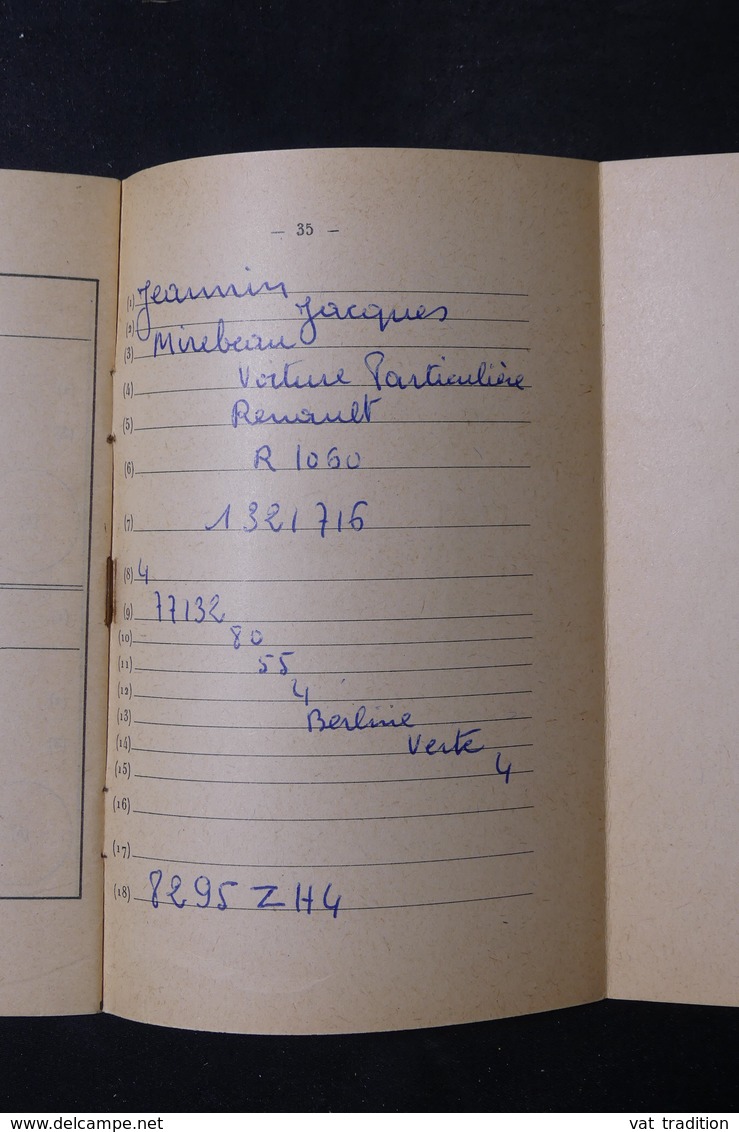 — 35 —
(1) Jeannin
(2) Jacques
(3) Mirebeau
(4) Voiture Particulière
(5) Renault
(6) R 1060
(7) 1321716
(8) 4
(9) 77132
(10) 80
(11) 55
(12) 4
(13) Berline
(14) Verte
(15) 4
(16)
(17)
(18) 8295 ZH4
www.delcampe.net
vat tradition